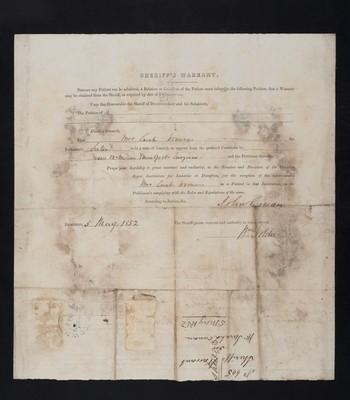 SHERIFF'S WARRANT.
Before any Patient can be admitted, a Relative or Guardian of the Patient must subscribe the following Petition, that a Warrant
may be obtained from the Sheriff, as required by Act of Parliament.
Unto the Honourable the Sheriff of Dumfriesshire and his Substitute,
The Petition of
Humbly sheweth,
That Mrs Sarah
Petitioner's Sister is in a state of Lunacy, as appears from the prefixed Certificate by
Surgeon and the Petitioner therefore
Prays your Lordship to grant warrant and authority to the Treasurer and Directors of the Crichton
Royal Institution for Lunatics at Dumfries, for the reception of the
Mrs Sarah as a Patient in that Institution, on the
Petitioner's complying with the Rules and Regulations of the same.
According to Justice, &c.
John
Dumfries, 5 May 1852 The Sheriff grants warrant and authority as craved.
No 405
Sheriff's Warrant
Mrs Sarah
5 May 1852